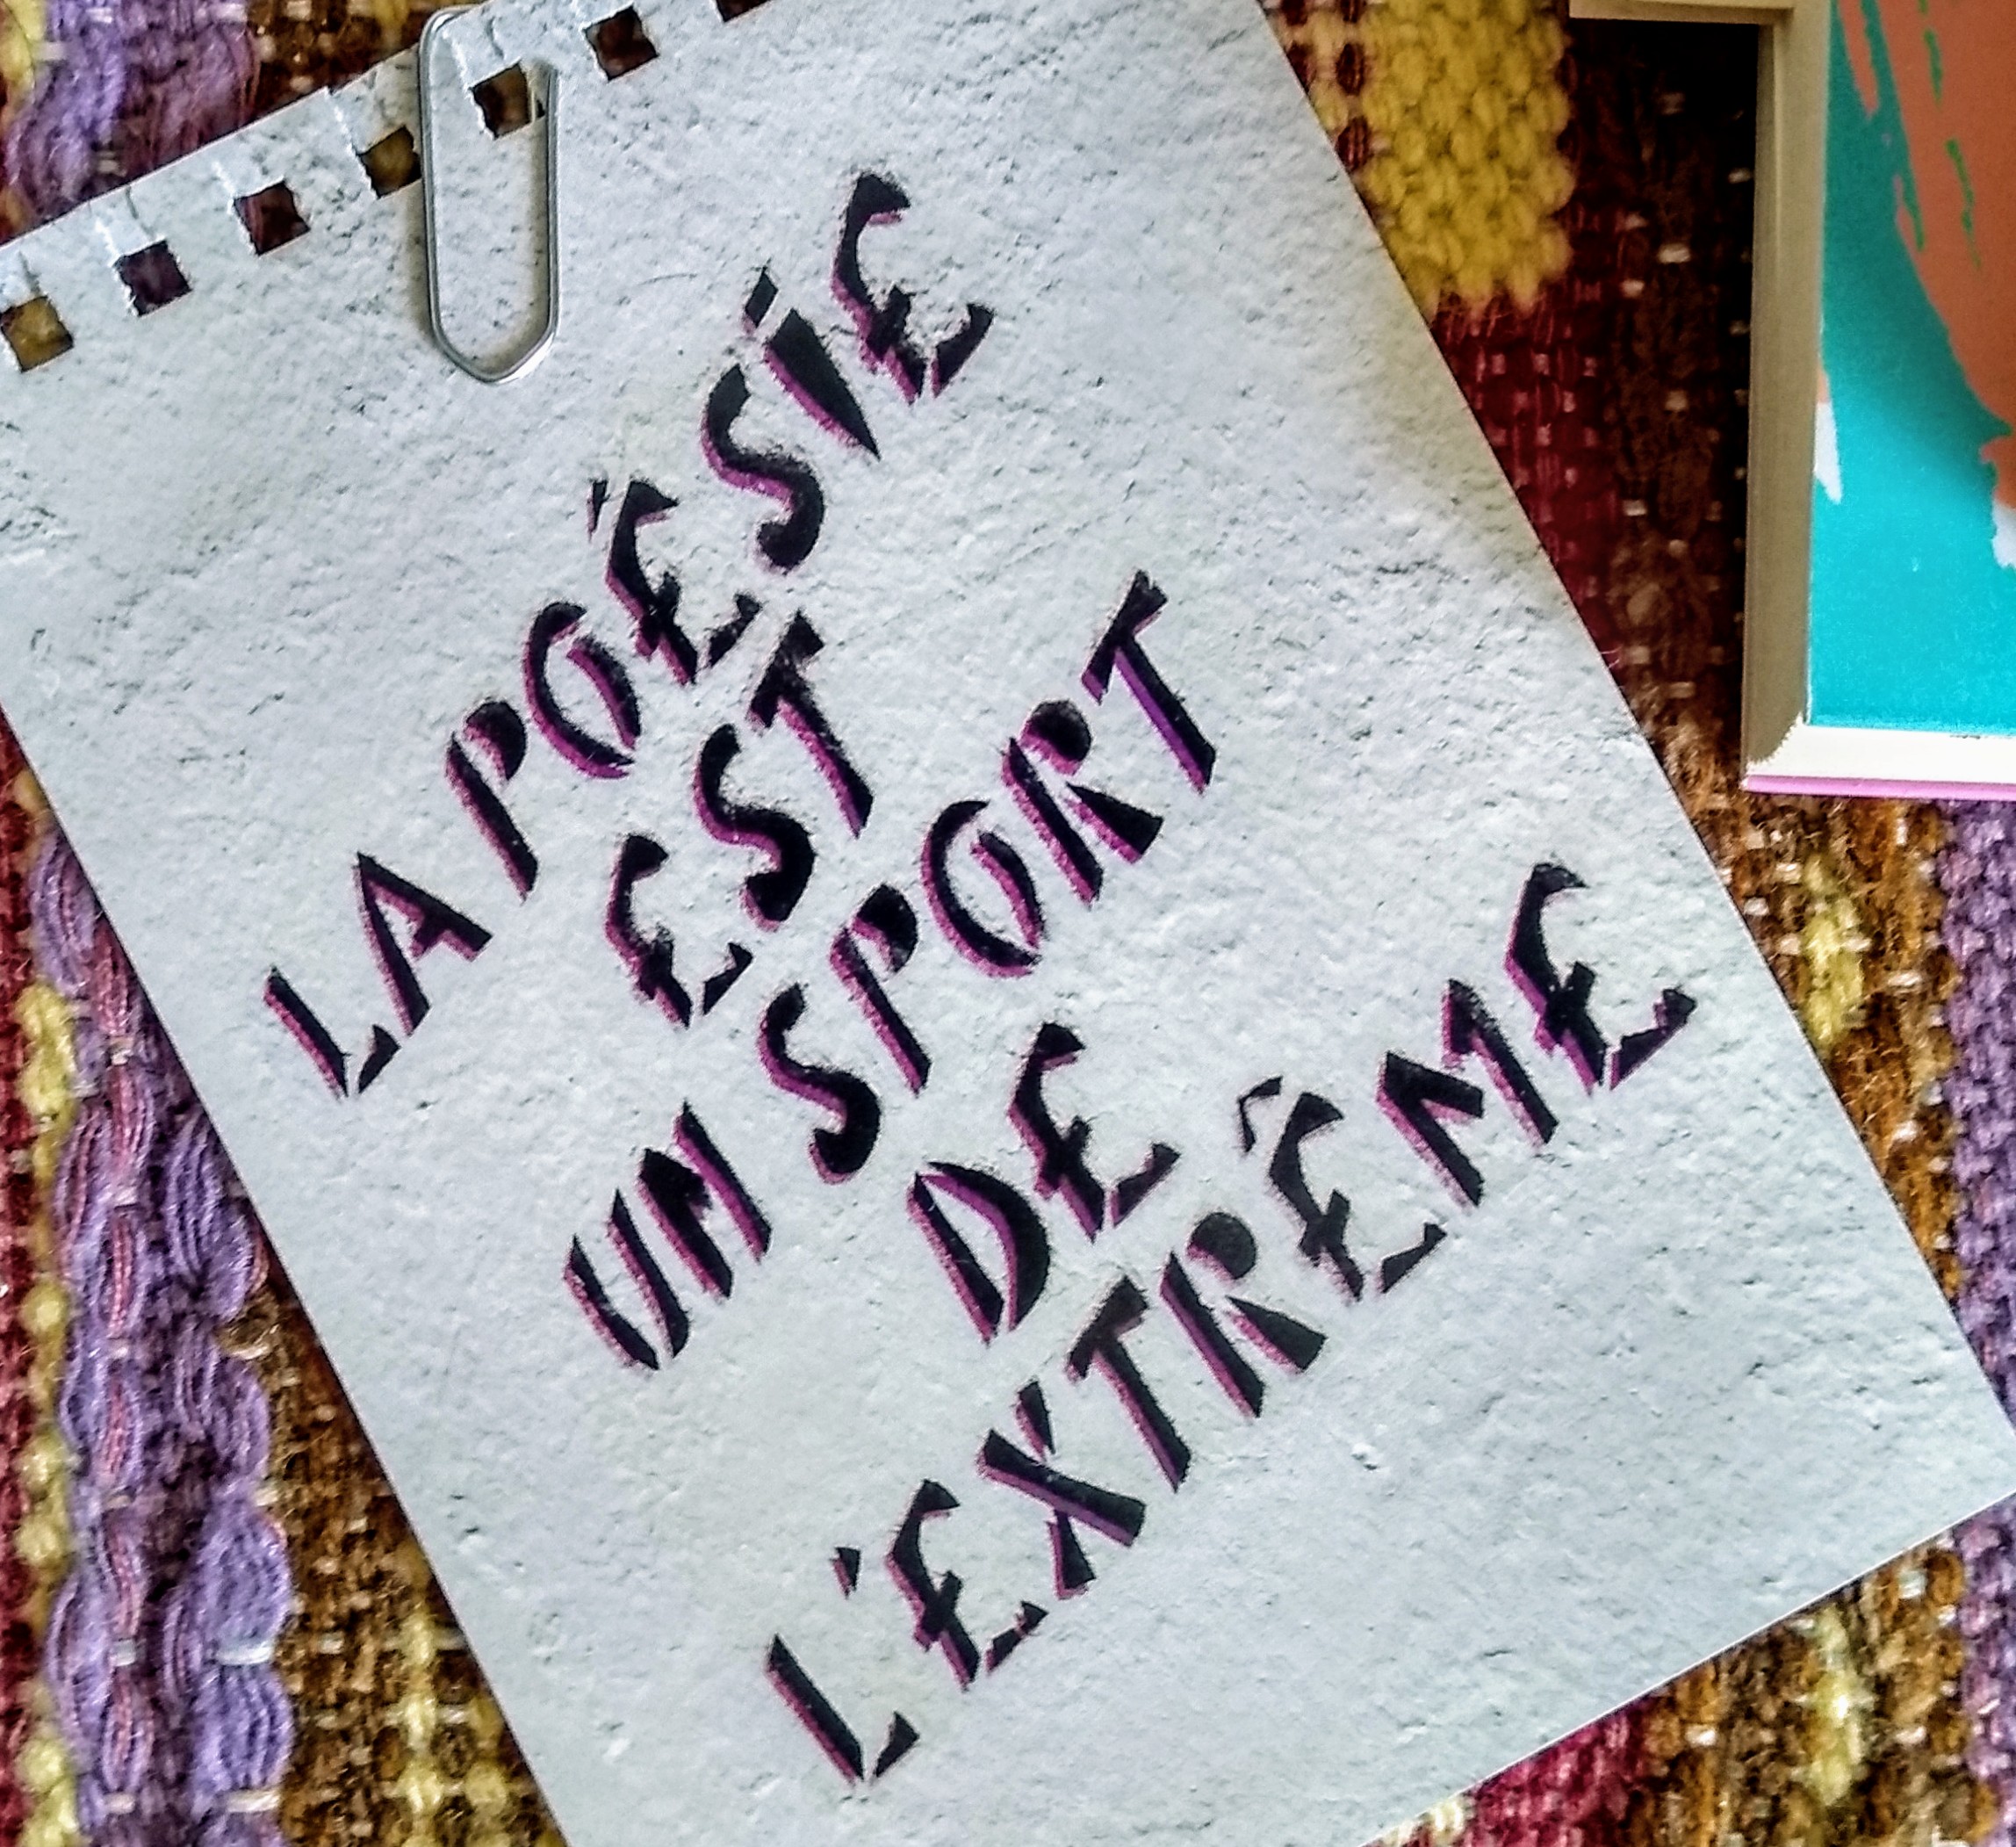 LA POÉSIE
EST
UN SPORT
DE
L'EXTRÊME